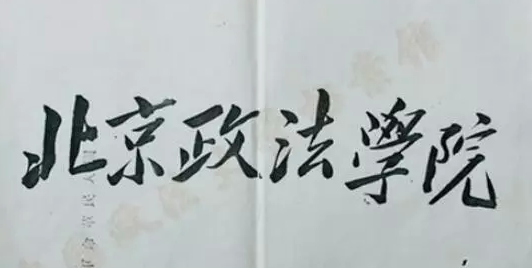 北京政法學院